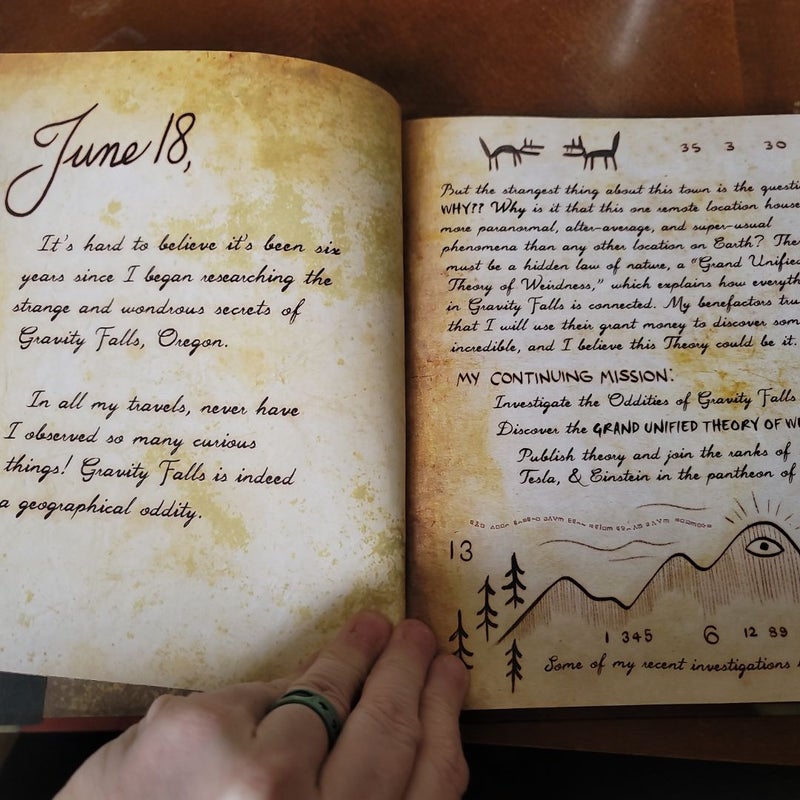 June 18,
It's hard to believe it's been six
years since I began researching the
strange and wondrous secrets of
Gravity Falls, Oregon.
In all my travels, never have
I observed so many curious
things! Gravity Falls is indeed
a geographical oddity.
35 3 30
But the strangest thing about this town is the
WHY?? Why is it that this one remote location
more paranormal, alter-average, and super-usual
phenomena than any other location on Earth?
must be a hidden law of nature, a "Grand Unified
Theory of Weirdness," which explains how
in Gravity Falls is connected. My benefactors
that I will use their grant money to discover
incredible, and I believe this Theory could be it.
MY CONTINUING MISSION:
Investigate the Oddities of Gravity Falls
Discover the GRAND UNIFIED THEORY OF
Publish theory and join the ranks of
Tesla, & Einstein in the pantheon of
13
1 345 6 12 89
Some of my recent investigations